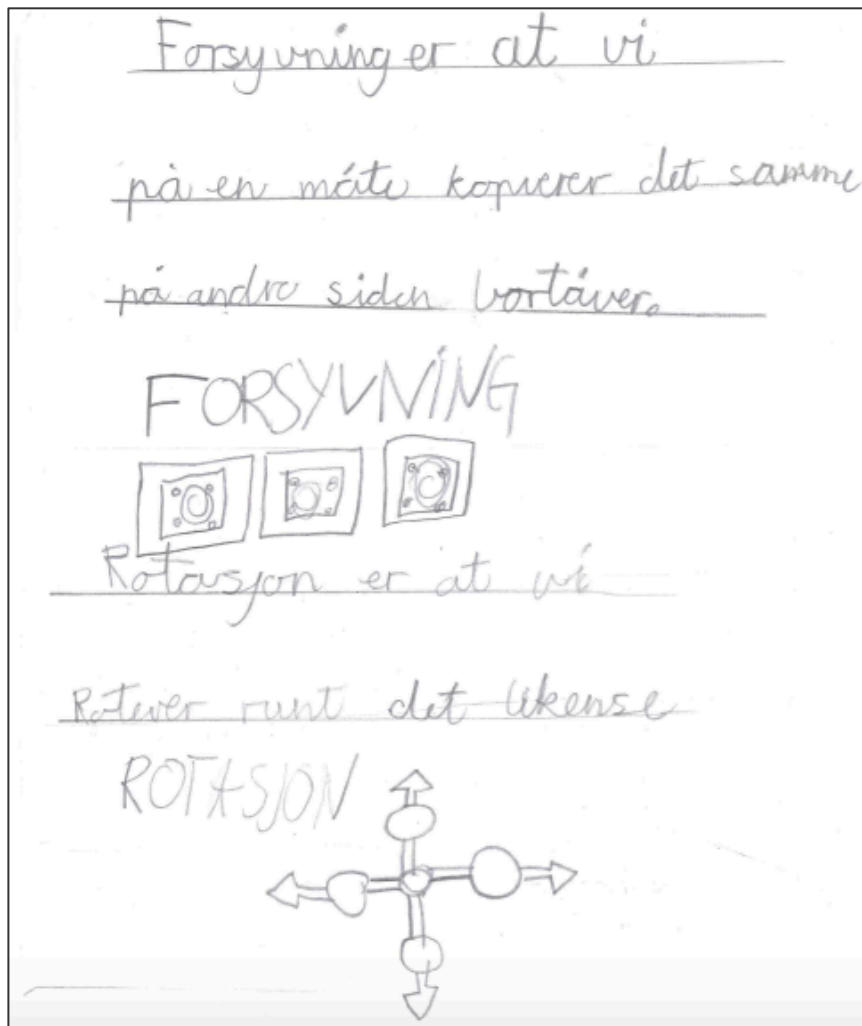 Forsyvning er at vi
på en måte kopierer det samme
på andre siden bortåver.
FORSYVNING
Rotasjon er at vi
Roterer runt det likense
ROTASJON